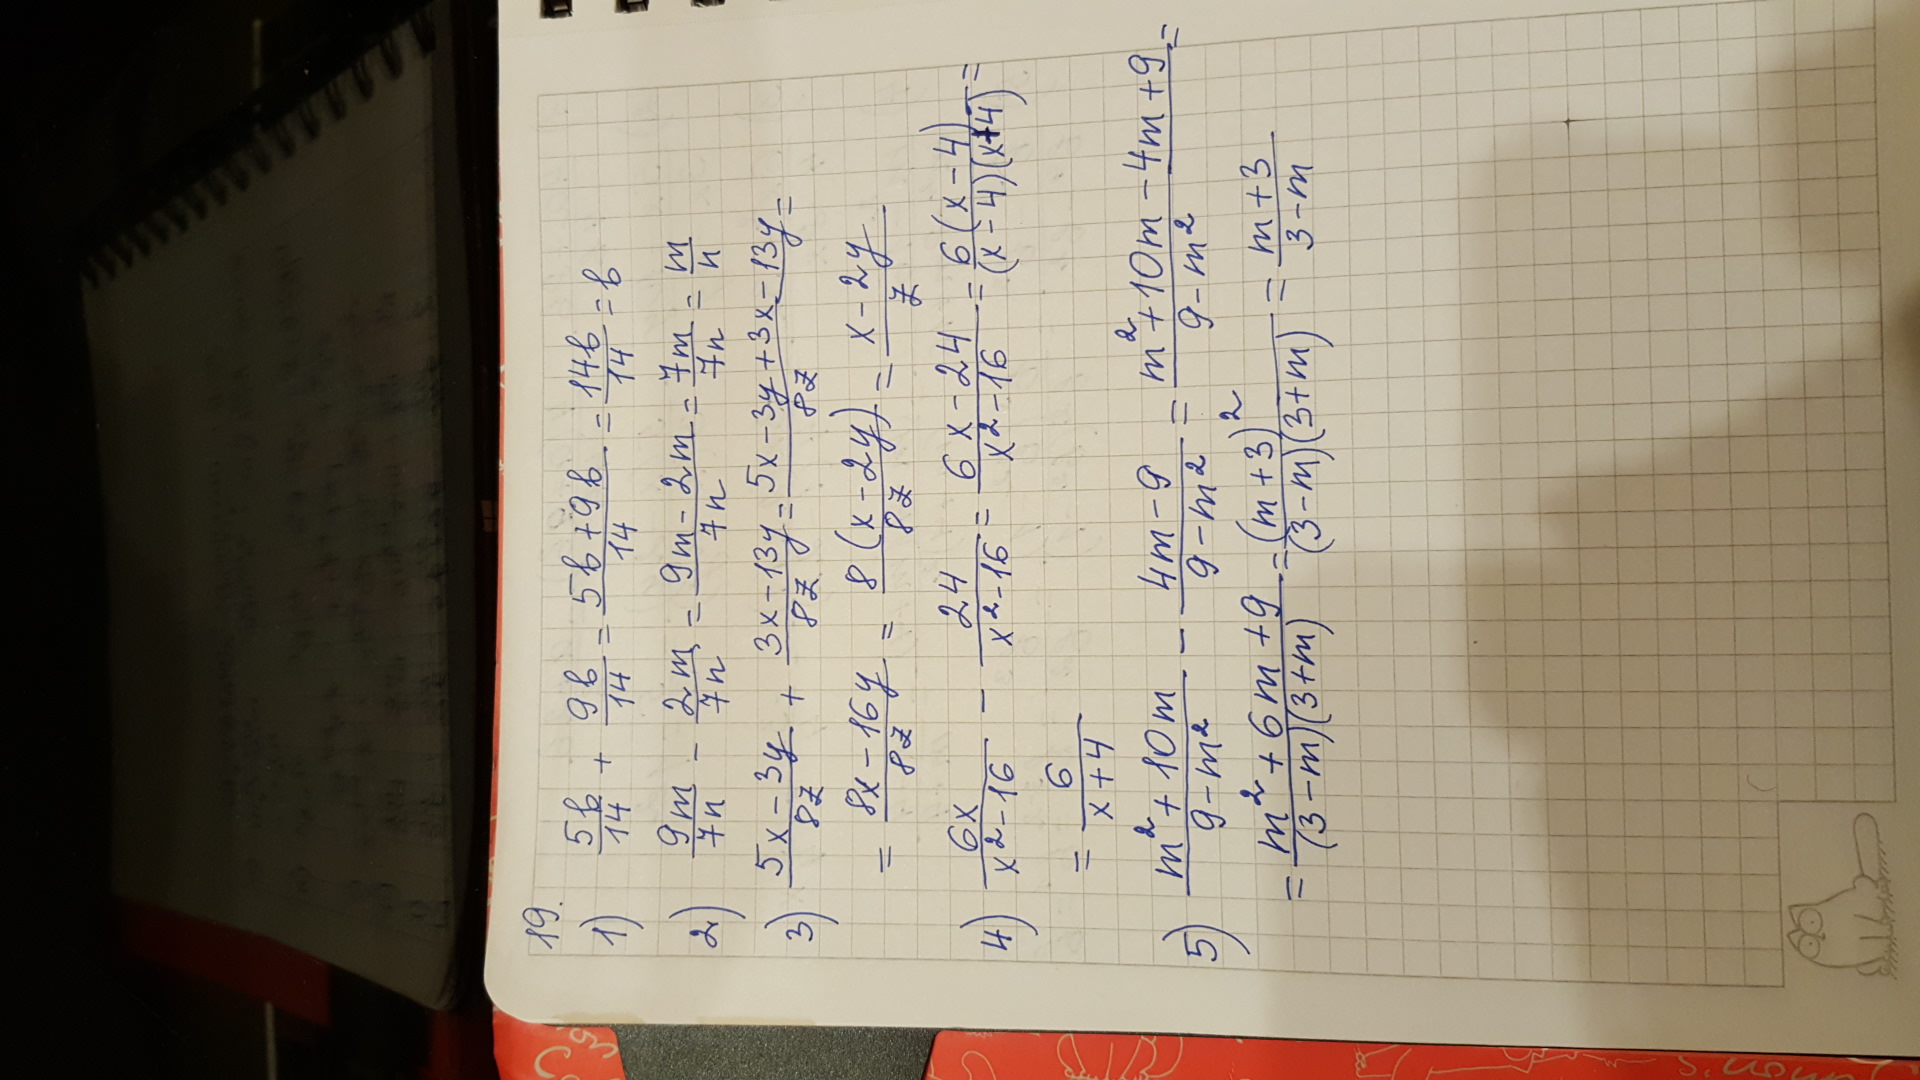 19.
1) 5b/14 + 9b/14 = (5b+9b)/14 = 14b/14 = b
2) 9m/7n - 2m/7n = (9m-2m)/7n = 7m/7n = m/n
3) (5x-3y)/8z + (3x-13y)/8z = (5x-3y+3x-13y)/8z =
= (8x-16y)/8z = 8(x-2y)/8z = (x-2y)/z
4) 6x/(x²-16) - 24/(x²-16) = (6x-24)/(x²-16) = 6(x-4)/(x-4)(x+4) =
= 6/(x+4)
5) (m²+10m)/(9-m²) - (4m-9)/(9-m²) = (m²+10m-4m+9)/(9-m²) =
= (m²+6m+9)/(3-m)(3+m) = (m+3)²/(3-m)(3+m) = (m+3)/(3-m)